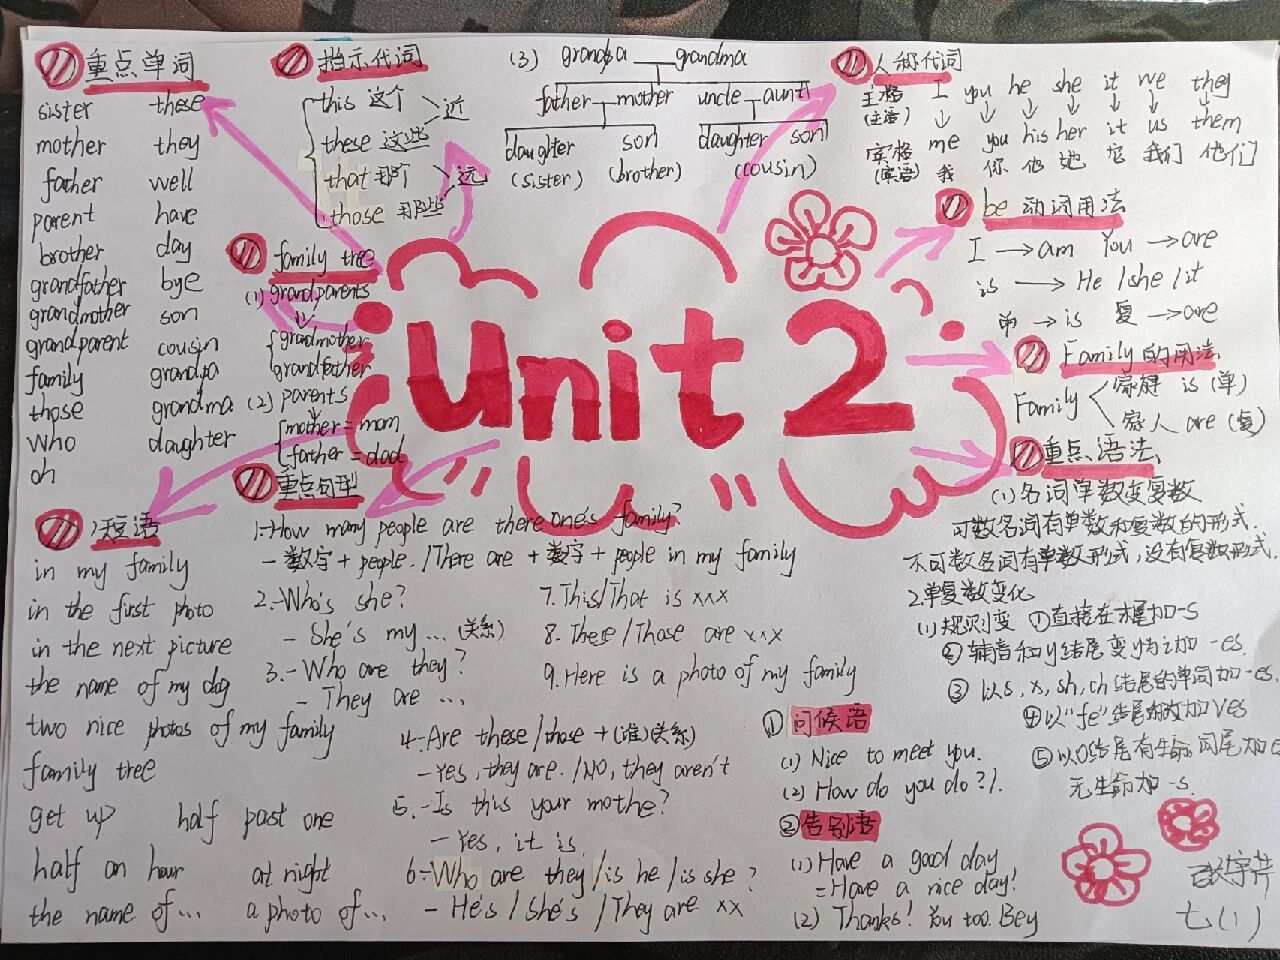 重点单词
sister these
mother they
father well
parent have
brother day
grandfather bye
grandmother son
grandparent cousin
family grandpa
those grandma
who daughter
oh
指示代词
this 这个
these 这些
近
that 那个
those 那些
远
family tree
(1) grandparents
grandmother
grandfather
(2) parents
mother = mom
father = dad
(3) grandpa grandma
father mother uncle aunt
daughter son daughter son
(sister) (brother) (cousin)
人称代词
主格 I you he she it we they
(主语)
宾格 me you his her it us them
(宾语) 我 你 他 她 它 我们 他们
be 动词用法
I → am You → are
is → He / she / it
单 → is 复 → are
Family的用法
Family
家庭 is (单)
家人 are (复)
Unit 2
重点语法
(1) 名词单数变复数
可数名词有单数和复数的形式.
不可数名词有单数形式,没有复数形式.
2.单复数变化
(1) 规则变 ①直接在末尾加-s
② 辅音和y结尾变y为i加 -es.
③ 以s, x, sh, ch 结尾的单词加 -es.
④以"fe"结尾的改加 ves
⑤以o结尾有生命 词尾加 e
无生命加 -s.
短语
in my family
in the first photo
in the next picture
the name of my dog
two nice photos of my family
family tree
get up half past one
half an hour at night
the name of... a photo of...
重点句型
1.-How many people are there one's family?
- 数字 + people. / There are + 数字 + people in my family
2.-Who's she?
- She's my ... (关系)
3.-Who are they?
- They are ...
4.-Are these / those + (谁)关系)
- Yes, they are. / No, they aren't
5.-Is this your mothe?
- Yes, it is
6.-Who are they / is he / is she ?
- He's / She's / They are xx
7.This/That is xxx
8. These / Those are xxx
9.Here is a photo of my family
① 问候语
(1) Nice to meet you.
(2) How do you do ?/.
② 告别语
(1) Have a good day
= Have a nice day!
(2) Thanks! You too. Bey
七(1)